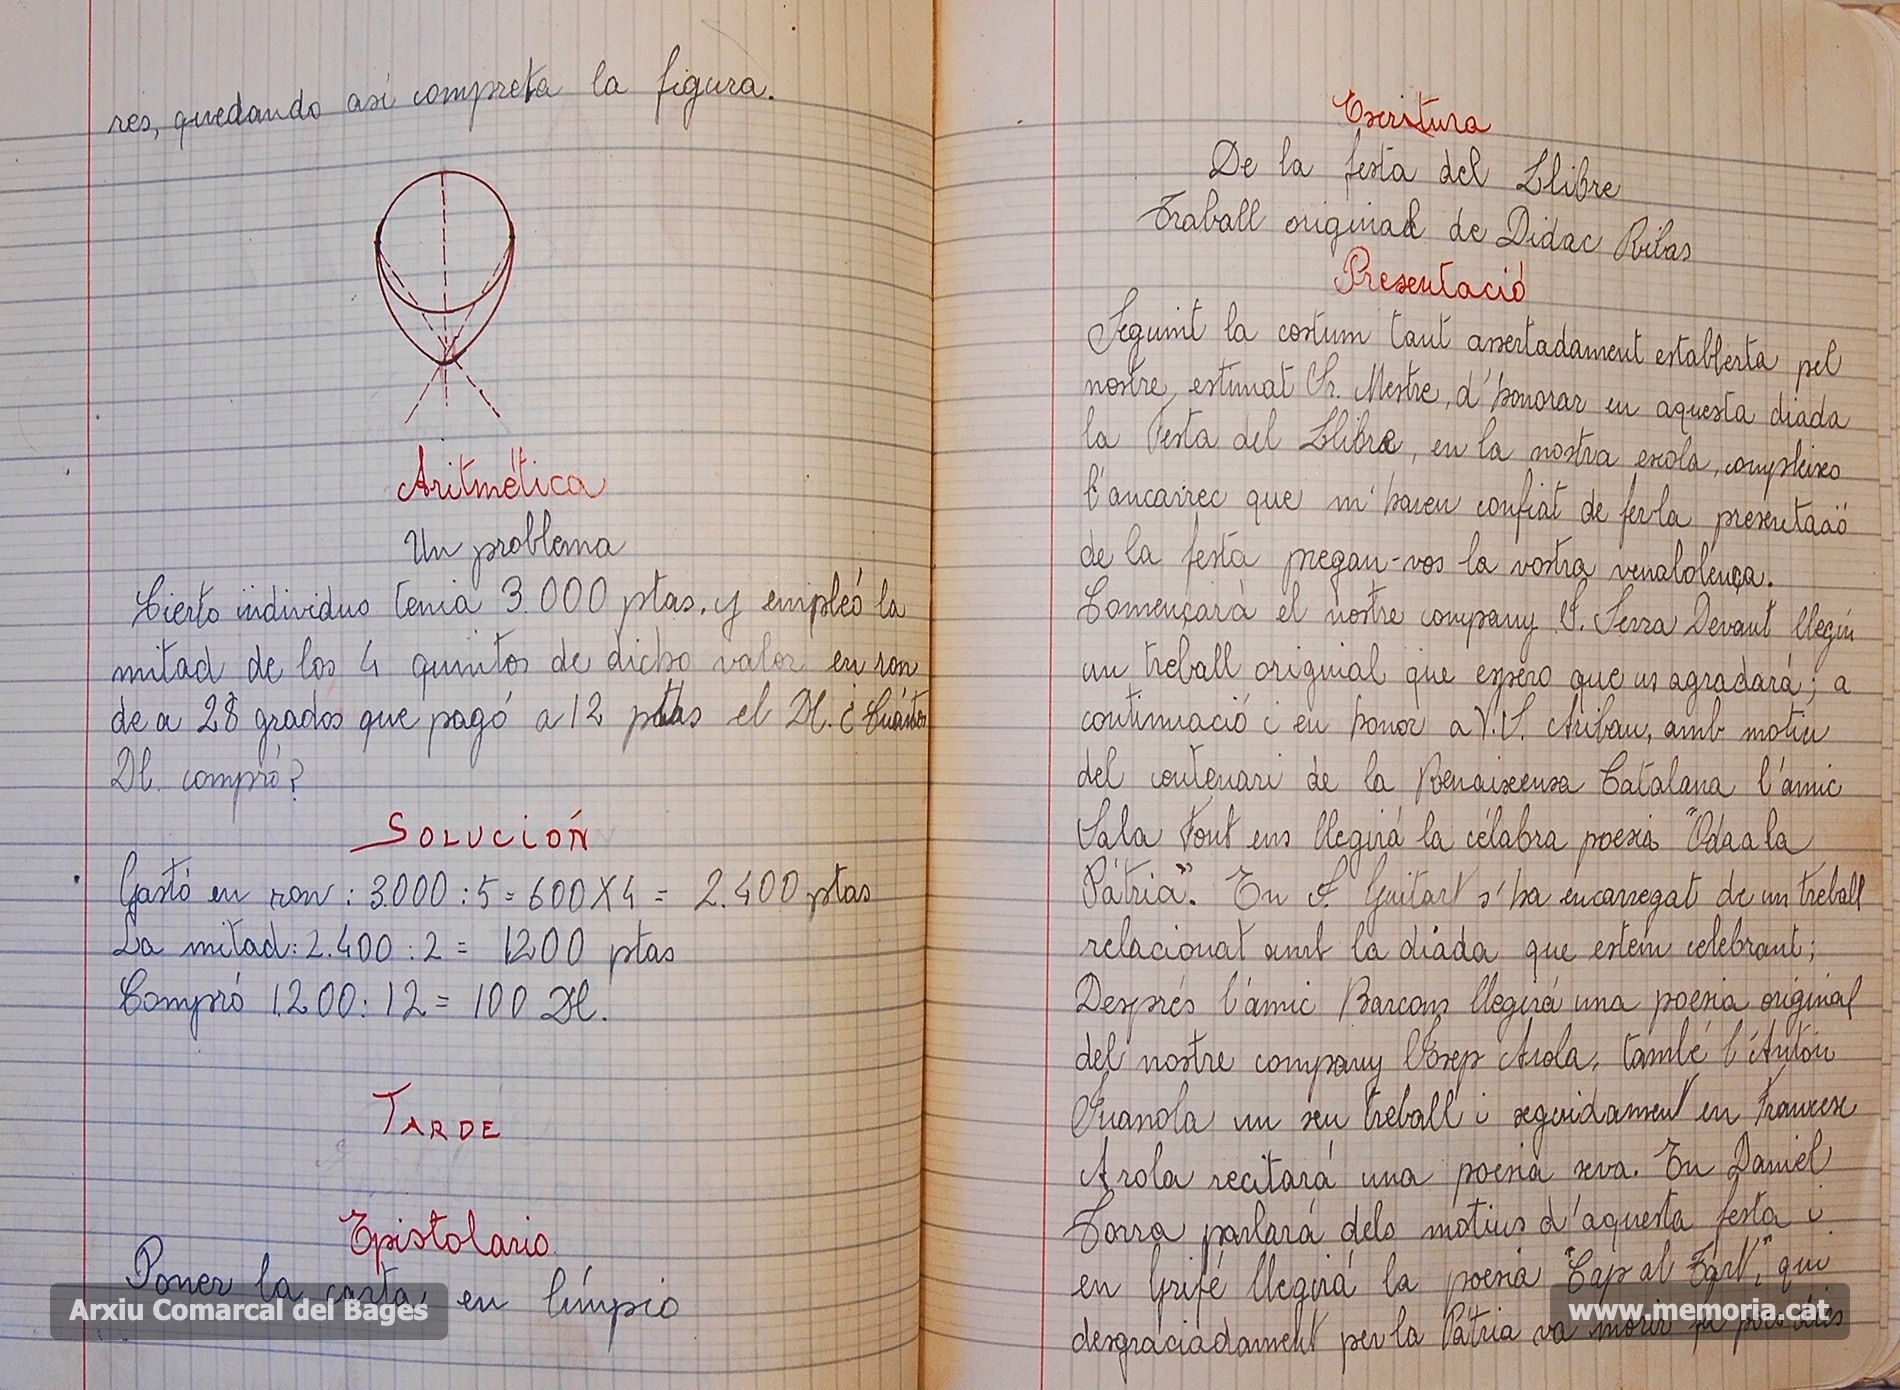 res, quedando así compreta la figura.
Aritmética
Un problema
Cierto individuo tenia 3.000 ptas. y empleó la
mitad de los 4 quintos de dicho valor en ron
de a 28 grados que pagó a 12 ptas el Dl. ¿Cuántos
Dl. compró?
SOLUCIÓN
Gastó en ron: 3.000 : 5 = 600 X 4 = 2.400 ptas
La mitad: 2.400 : 2 = 1200 ptas
Compró 1.200 : 12 = 100 Dl.
TARDE
Epistolario
Poner la carta en límpio
Arxiu Comarcal del Bages
Escritura
De la festa del Llibre
Traball original de Didac Ribas
Presentació
Seguint la costum tant assertadament establerta pel
nostre, estimat Sr. Mestre, d'honorar en aquesta diada
la Festa del Llibre, en la nostra escola, compleixo
l'ancàrrec que m'haveu confiat de fer la presentació
de la festa pregan-vos la vostra venabolença.
Començarà el nostre company S. Serra Devant llegin
un treball original que espero que us agradará; a
continuació i en honor a V.S. Aribau, amb motiu
del contenari de la Renaixensa Catalana l'ámic
Sala Font ens llegirá la célabra poesia "Oda a la
Pàtria". En J. Guitart s'ha encarregat de un treball
relacionat amb la diada que estem celebrant;
Desprès l'ámic Barcons llegirá una poesia original
del nostre company Josep Arola, també l'Anton
Juanola un seu treball i seguidament en Francesc
Arola recitará una poesia seva. En Daniel
Torra parlará dels motius d'aquesta festa i
en Grifé llegirá la poesia "Cap al Tart", qui
desgraciadament per la Pàtria va morir fa
www.memoria.cat